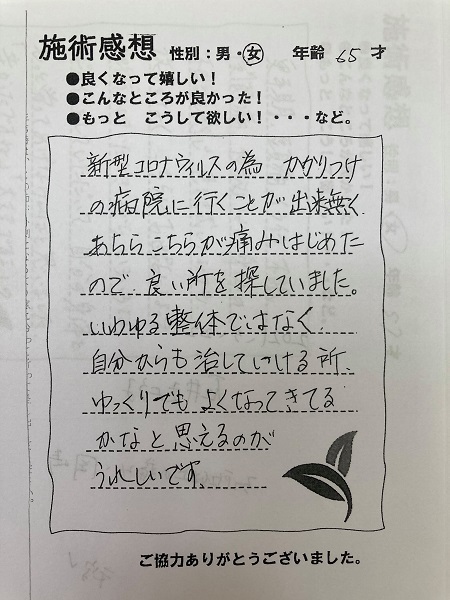 施術感想 性別：男・女 年齢 65 才
●良くなって嬉しい！
●こんなところが良かった！
●もっと こうして欲しい！・・・など。
新型コロナウィルスの為 かかりつけ
の病院に行くことが出来無く
あちらこちらが痛みはじめた
ので 良い所を探していました。
いわゆる整体ではなく
自分からも治していける所、
ゆっくりでも よくなってきてる
かなと思えるのが
うれしいです。
ご協力ありがとうございました。